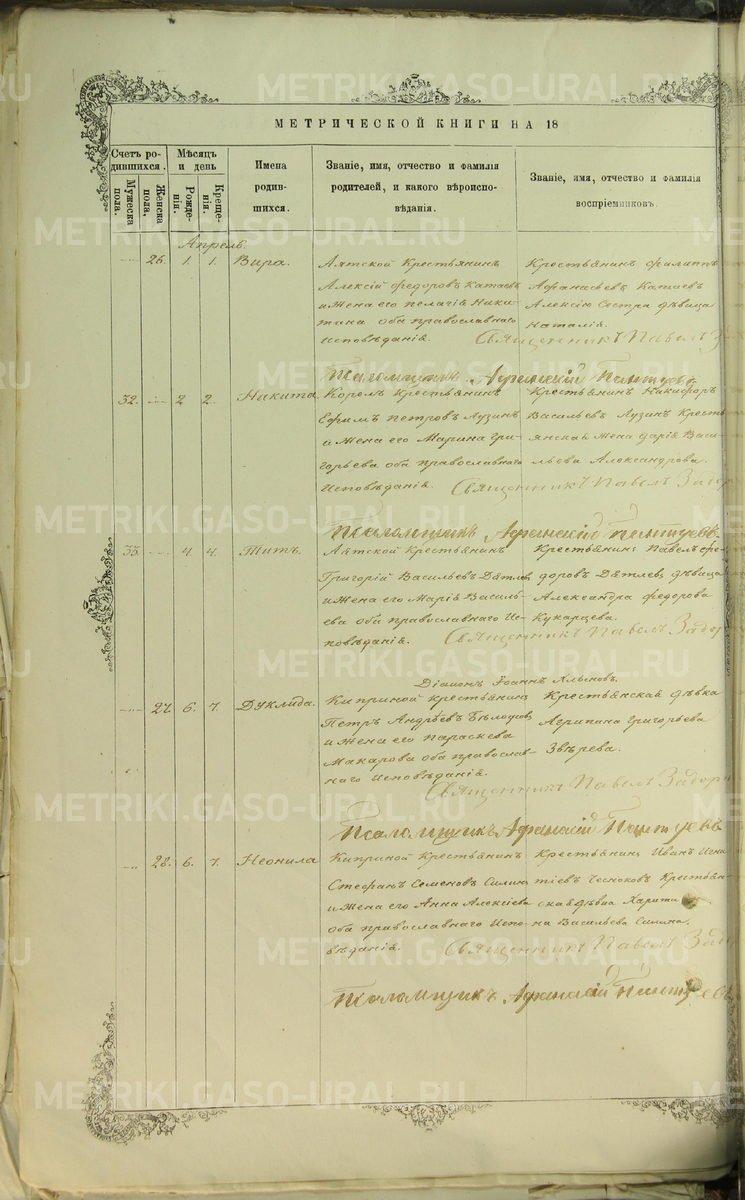 METRIKI.GASO-URAL.RU
МЕТРИЧЕСКОЙ КНИГИ НА 18
Счетъ родившихся.
Мужеска пола.
Женска пола.
Мѣсяцъ и день
Рожденія.
Крещенія.
Имена родившихся.
Званіе, имя, отчество и фамилія родителей, и какого вѣроисповѣданія.
Званіе, имя, отчество и фамилія воспріемниковъ.
Апрель.
26. 1. 1. Вира.
Аятской Крестьянинъ
Алексій Федоровъ Катаевъ
и Жена его Пелагія Ники-
тина оба православнаго
исповѣданія.
Крестьянинъ Филиппъ
Афанасьевъ
Алексію Сестра дѣвица
Наталія.
Священникъ Павелъ
Псаломщикъ
32. 2. 2. Никита.
Корелъ Крестьянинъ
Ефимъ Петровъ Лузинъ
и Жена его Марина Гри-
горьева оба православнаго
Исповѣданія.
Крестьянинъ Никифоръ
Васильевъ Лузин Кресть
янская Жена Дарія Васи-
льева Александрова.
Священникъ Павелъ Задор
Псаломщикъ
33. 4. 4. Титъ.
Аятской Крестьянинъ
Григорій Васильевъ Дѣтлев
и Жена его Марія Василь-
ева оба православнаго Ис-
повѣданія.
Крестьянинъ Павелъ Фе-
доровъ Дѣтлевъ дѣвица
Александра Федорова
Кукарцева.
Священникъ Павелъ Задор
Діаконъ Іоаннъ Хлыновъ.
27. 6. 7. Дуклида.
Киприной крестьянинъ
Петръ Андрѣевъ
и Жена его Параскева
Макарова оба православ-
наго Исповѣданія.
Крестьянская дѣвка
Агрипина Григорьева
Звѣрева.
Священникъ Павелъ Задорн
Псаломщикъ Афанасій Пантуевъ
28. 6. 7. Неонила
Киприной Крестьянинъ
Стефанъ Семеновъ Силин
и Жена его Анна Алексіева
оба православнаго Испо-
вѣданія.
Крестьянинъ Иванъ Игна
тіевъ Чесноковъ Крестьян-
ская дѣвка Харити
на Васильева Силина.
Священникъ Павелъ Задо
Псаломщикъ Афанасій Пантуевъ